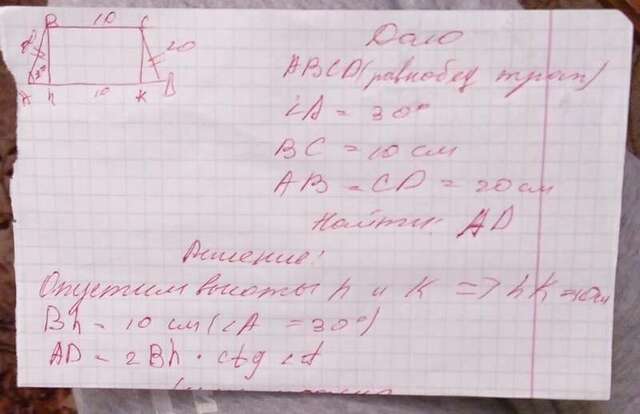 B 10 C
20 20
30°
A h 10 K D
Дано
ABCD (равнобед трап)
∠A = 30°
BC = 10 см
AB = CD = 20 см
Найти: AD
Решение:
Опустим высоты h и K => hK = 10см
Bh = 10 см (∠A = 30°)
AD = 2Bh · ctg ∠A